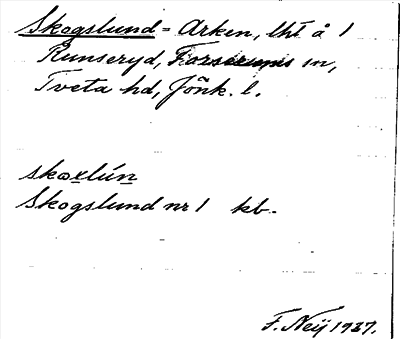 Skogslund = Arken, lht å 1
Runseryd, Forserums sn,
Tveta hd, Jönk. l.
skoxlún
Skogslund nr 1 kb.
F. Neij 1937.